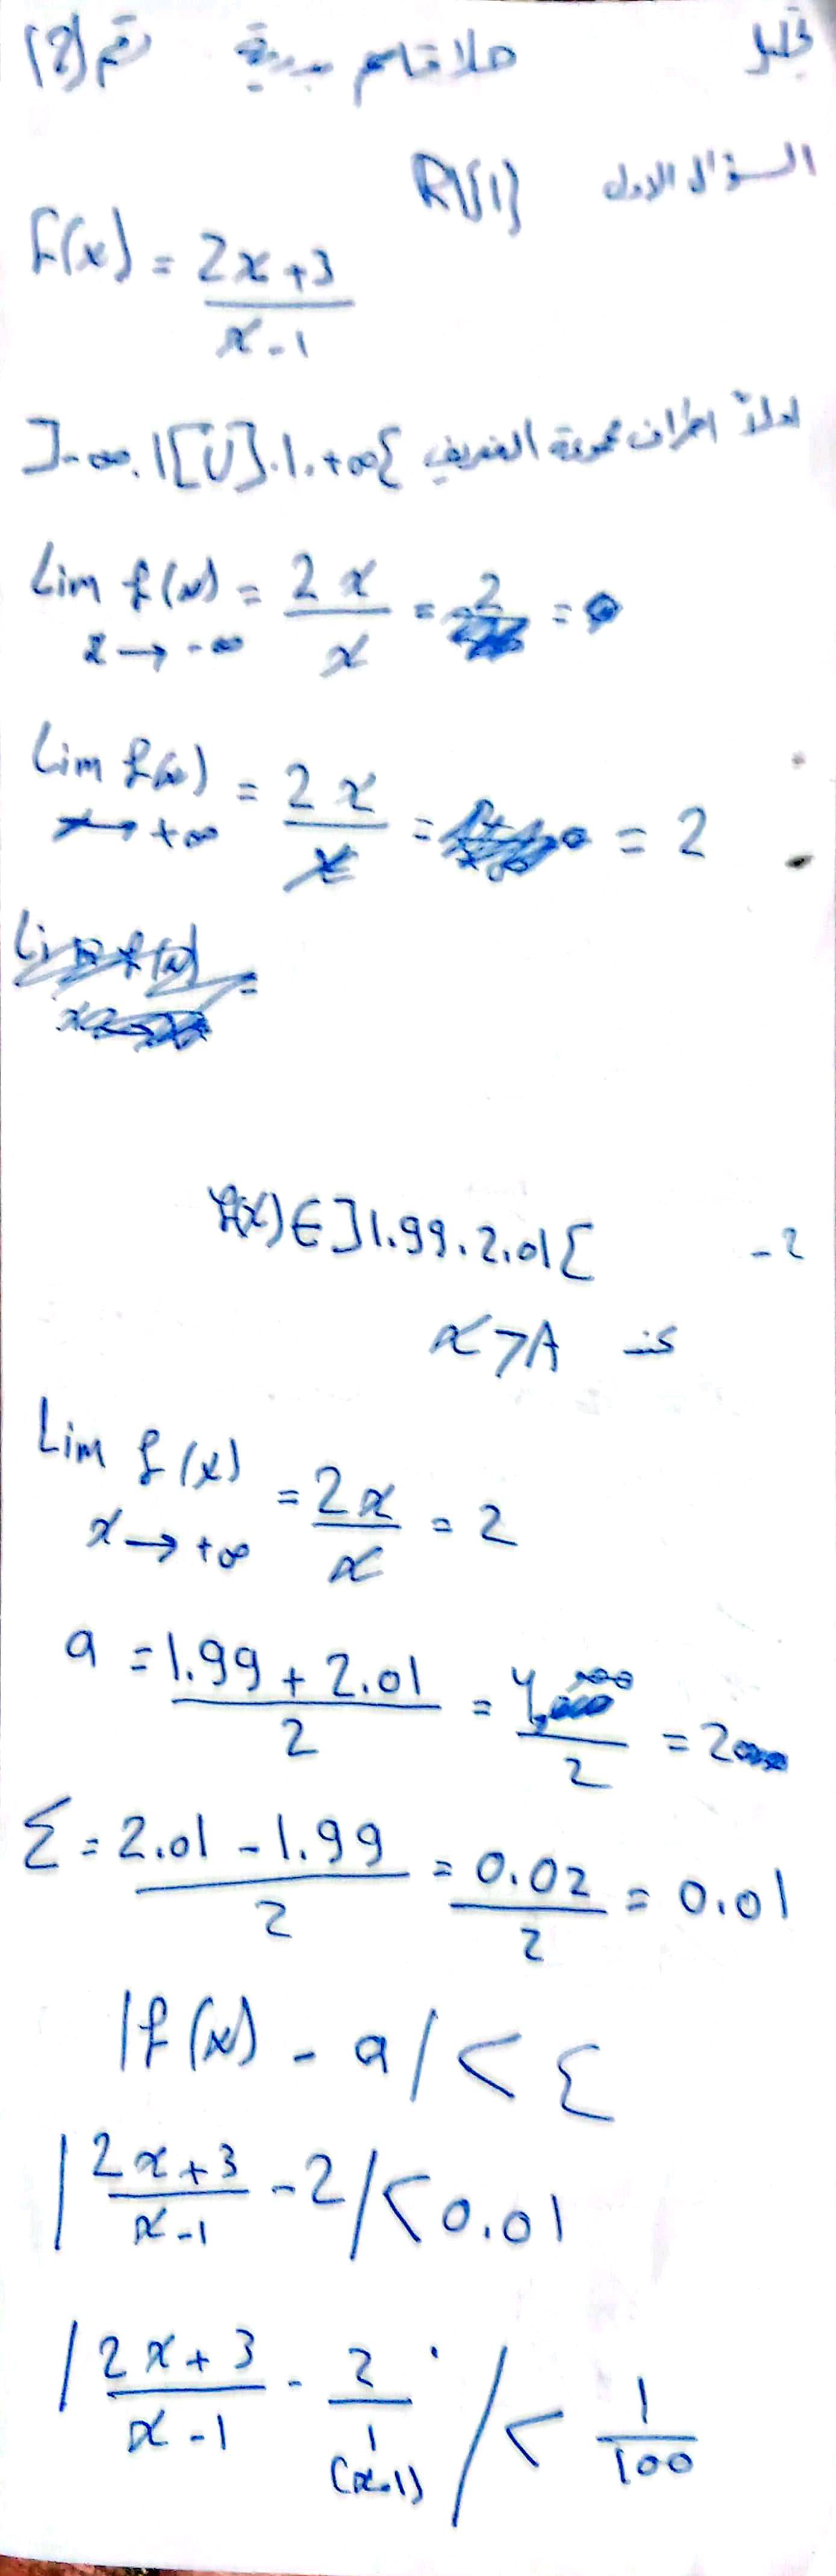 تحليل حلا قاسم رقم (2)
السؤال الاول R\{1}
f(x) = \frac{2x+3}{x-1}
اولاً اطراف مجموعة التعريف ]-∞, 1[ U ]1, +∞[
Lim f(x) = \frac{2x}{x} = 2
x → -∞
Lim f(x) = \frac{2x}{x} = 2
x → +∞
2- f(x) ∈ ]1.99, 2.01[
x > A
Lim f(x) = \frac{2x}{x} = 2
x → +∞
a = \frac{1.99 + 2.01}{2} = \frac{4}{2} = 2
Ɛ = \frac{2.01 - 1.99}{2} = \frac{0.02}{2} = 0.01
|f(x) - a| < Ɛ
|\frac{2x+3}{x-1} - 2| < 0.01
|\frac{2x+3}{x-1} - \frac{2}{1}| < \frac{1}{100}
(x-1)